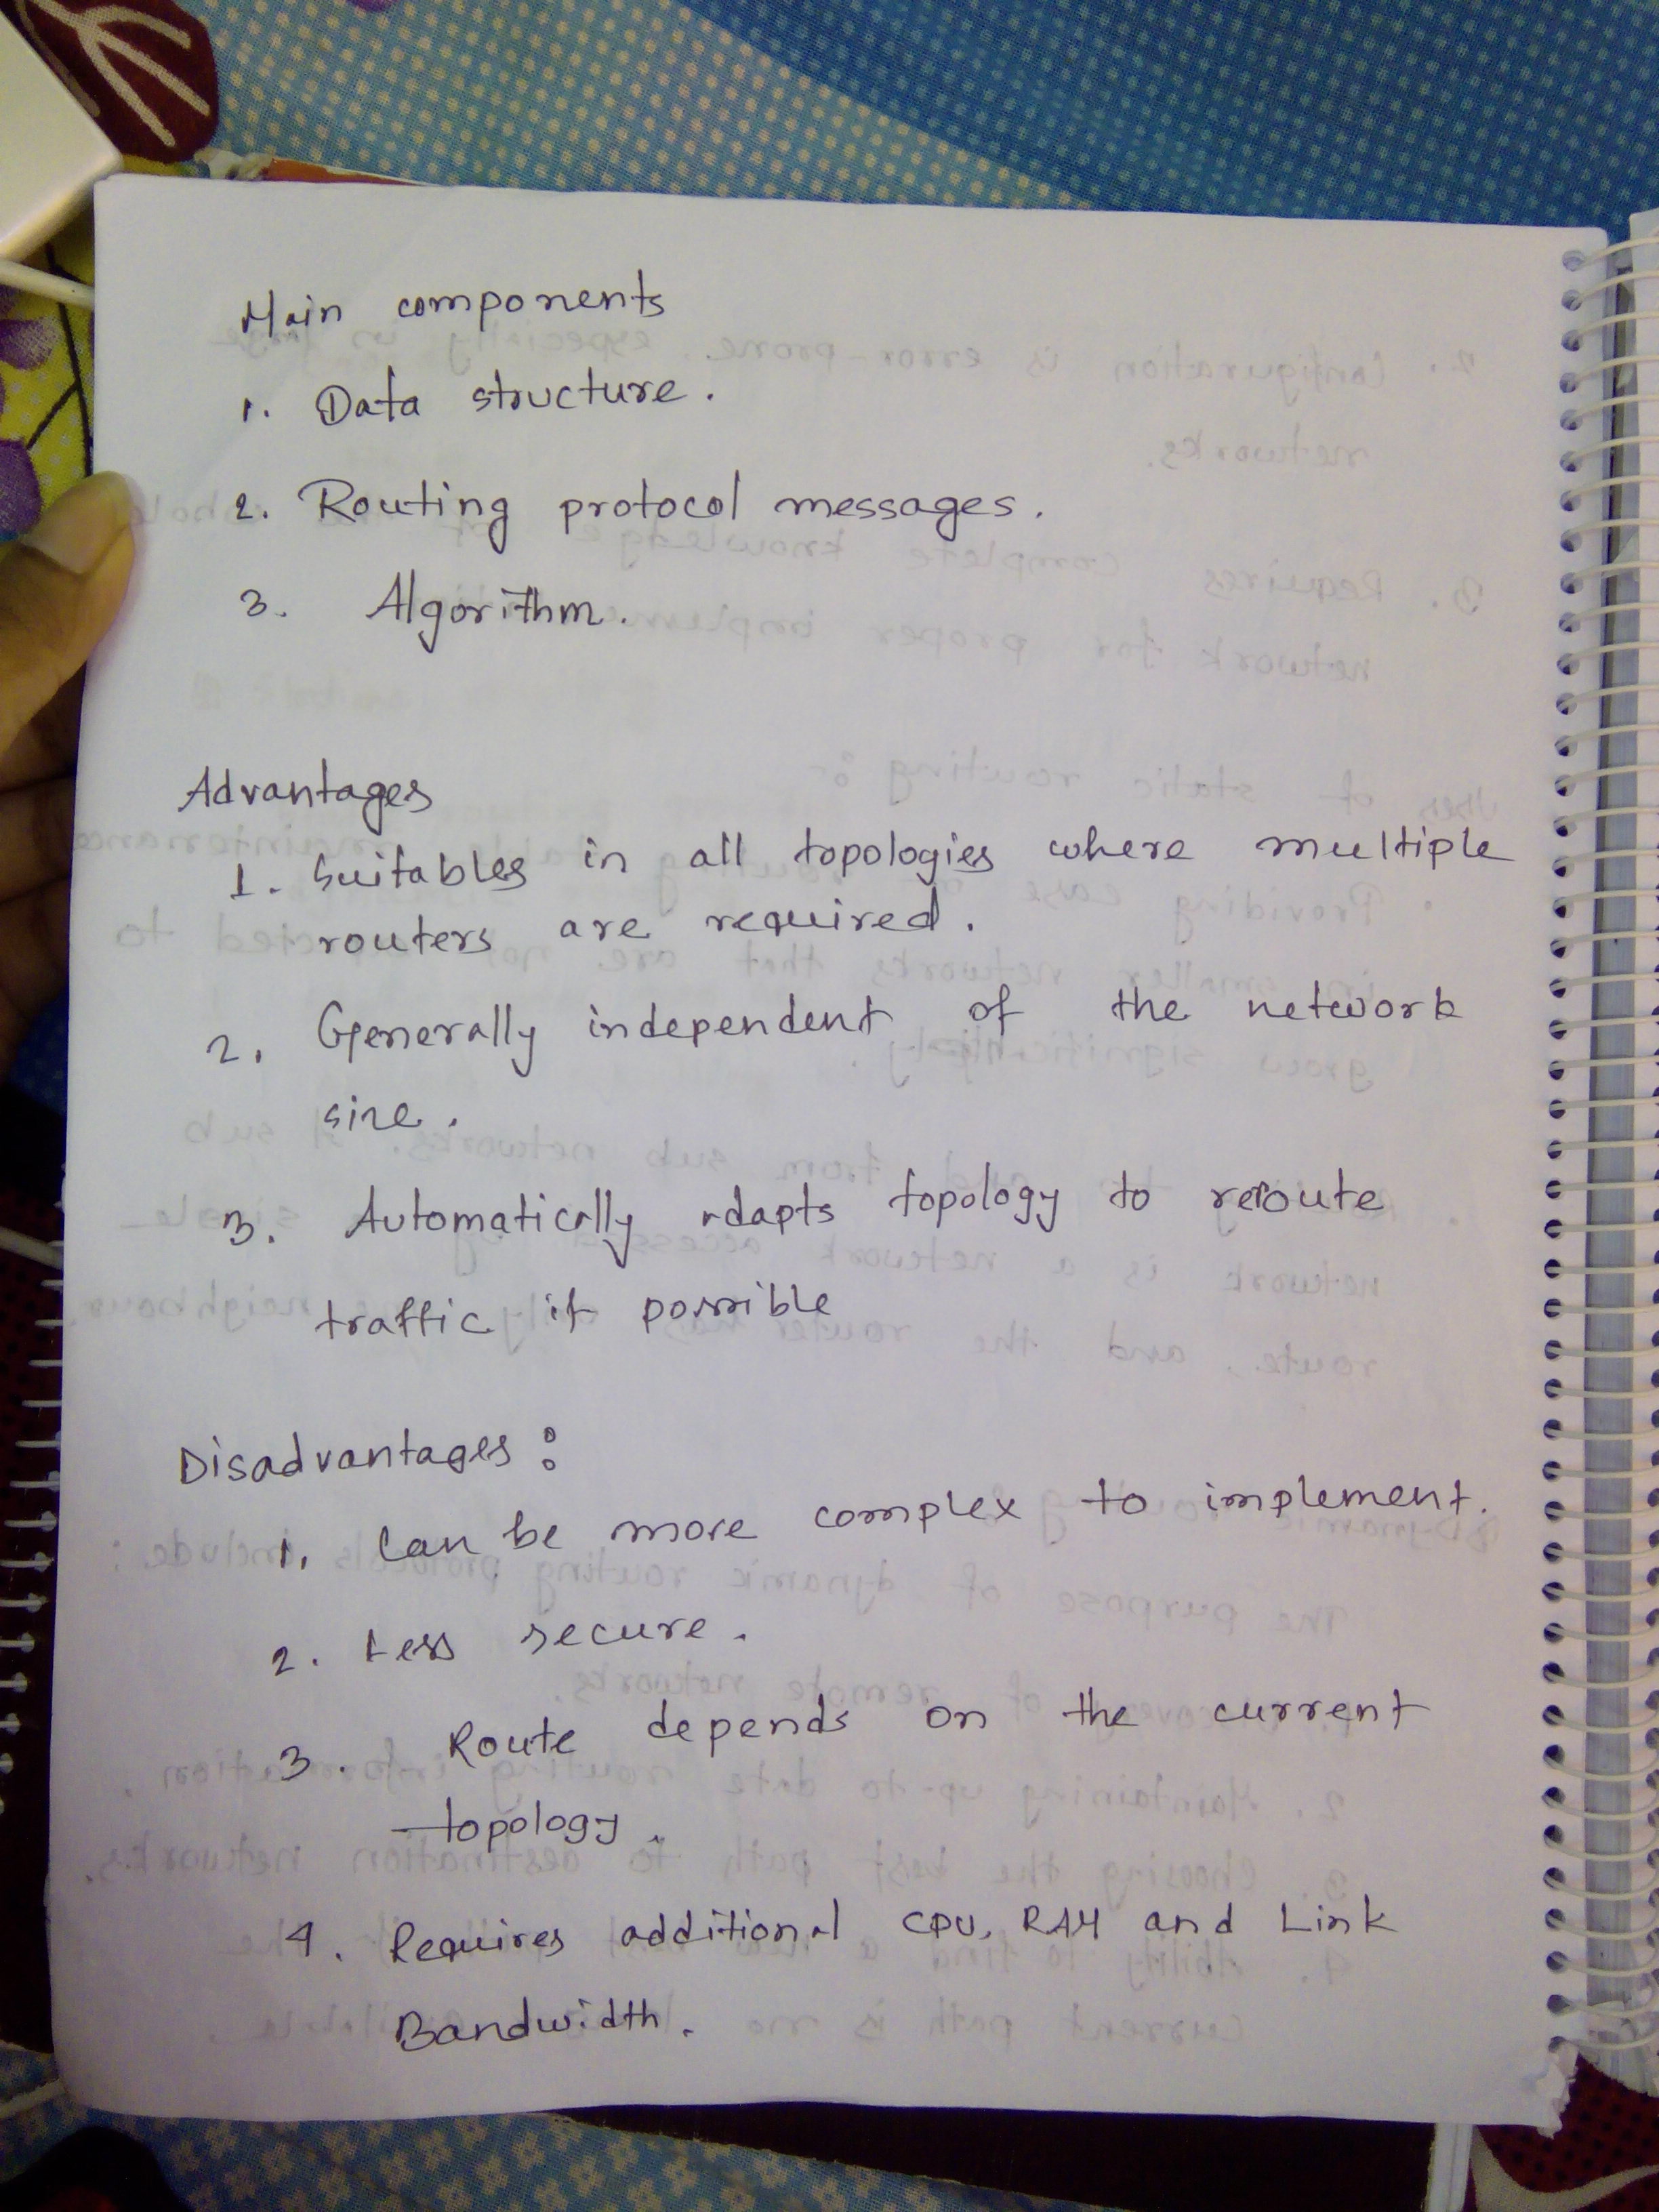 Main components
1. Data structure.
2. Routing protocol messages.
3. Algorithm.
Advantages
1. Suitables in all topologies where multiple
routers are required.
2. Generally independent of the network
size.
3. Automatically adapts topology to reroute
traffic if possible
Disadvantages :
1. Can be more complex to implement.
2. Less secure.
3. Route depends on the current
topology.
4. Requires additional CPU, RAM and Link
Bandwidth.